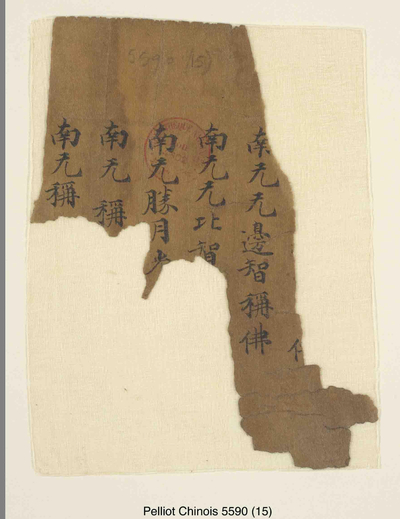 5590 (15)
南无无邊智稱佛
南无无比智
南无勝月
南无稱
南无稱
Pelliot Chinois 5590 (15)